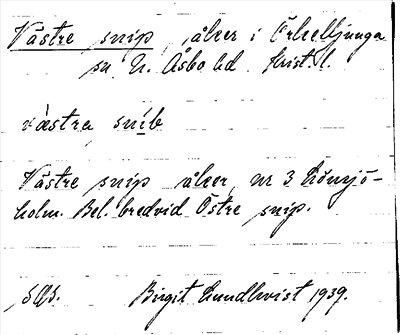 Västre snip, åker i Örkelljunga
sn N. Åsbo hd Krist. l.
väs̀tra sníb
Västre snip åker, nr 3 Lönsjö-
holm. Bel. bredvid Östre snip.
Birgit Lundkvist 1939.